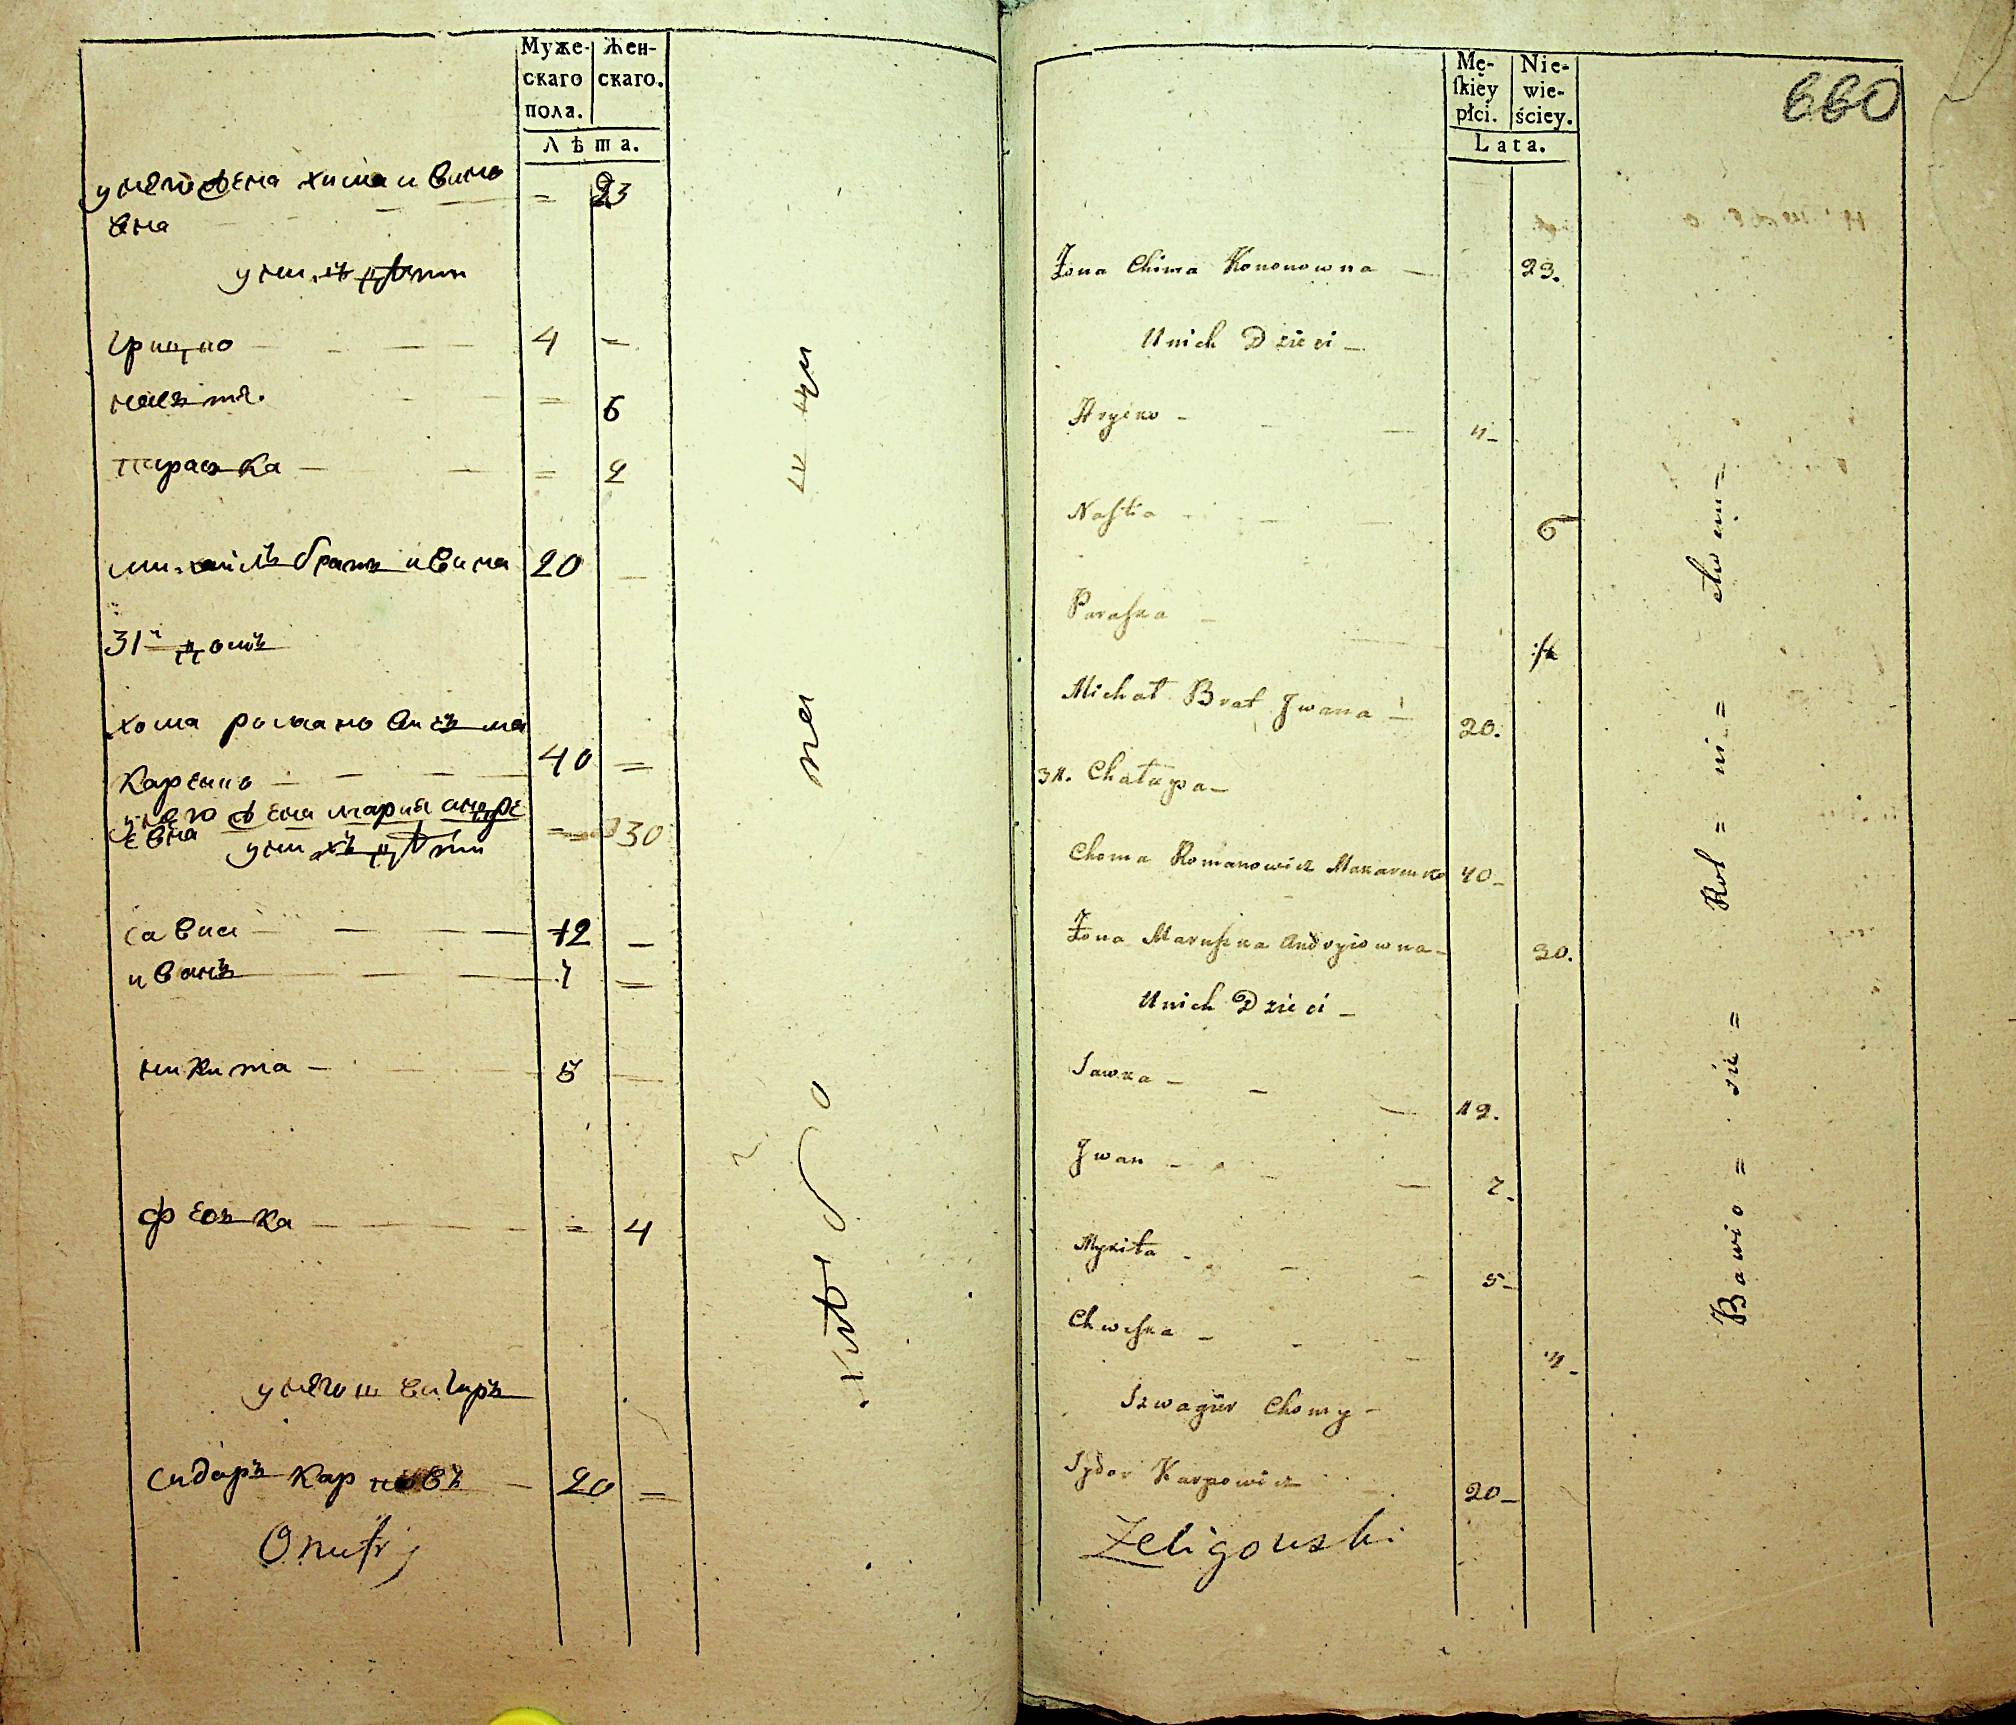 Муже-
скаго
пола.
Жен-
скаго.
Лѣта.
у него жена хима
вна = 23
у нихъ дѣти
грицко 4 =
настя = 6
параска = 2
михайлъ братъ ивана 20
31й домъ
хома романовичъ ма
каренко 40 =
у него жена мария андре
евна = 30
у нихъ дѣти
савка 12
иванъ 7 =
никита 5
феська = 4
у него швагиръ
сидоръ карповъ 20 =
Onufry
хлѣбо
па
Mę-
ſkiey
płci.
Nie-
wie-
ściey.
Lata.
660
Żona Chima Kononowna 23.
Unich Dzieci
Hrycko 4
Nastia 6
Paraska
Michał Brat Jwana 20.
31. Chałupa
Choma Romanowicz Makarenko 40
Żona Maruszka Andryiowna 30.
Unich Dzieci
Sawka 12.
Jwan 7.
Mykita 5
Chweska 4
Szwagier Chomy
Sydor Karpowicz 20
Zeligowski
Bawio = sie = Rol = ni = ctw em =